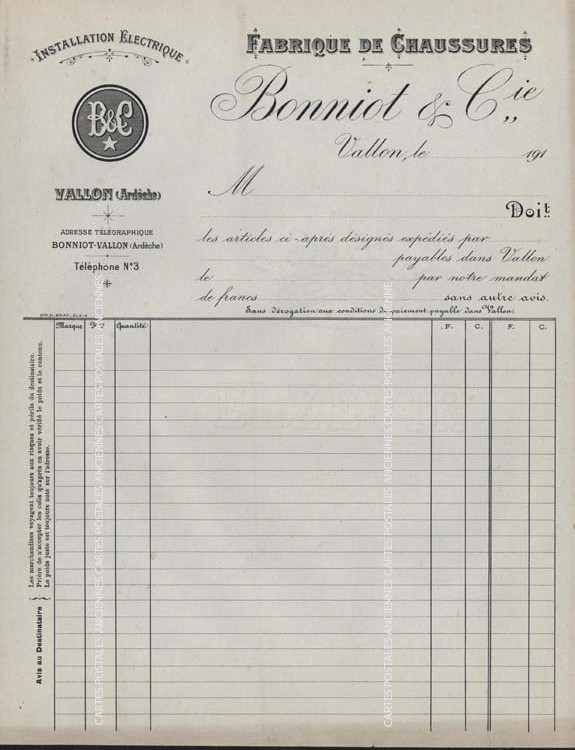 INSTALLATION ÉLECTRIQUE
B&C
VALLON (Ardèche)
ADRESSE TÉLÉGRAPHIQUE
BONNIOT-VALLON (Ardèche)
Téléphone N°3
FABRIQUE DE CHAUSSURES
Bonniot & Cie
Vallon, le 191
M
Doit
les articles ci-après désignés expédiés par
payables dans Vallon
le par notre mandat
de francs sans autre avis.
Sans dérogation aux conditions de paiement payable dans Vallon.
Marque Quantité F. C. F. C.
Avis au Destinataire
Les marchandises voyagent toujours aux risques et périls du destinataire.
Prière de n'accepter les colis qu'après en avoir vérifié le poids et le contenu.
Le poids juste est toujours noté sur l'adresse.
CARTES POSTALES ANCIENNES CARTES POSTALES ANCIENNES CARTES POSTALES ANCIENNES
CARTES POSTALES ANCIENNES CARTES POSTALES ANCIENNES CARTES POSTALES ANCIENNES